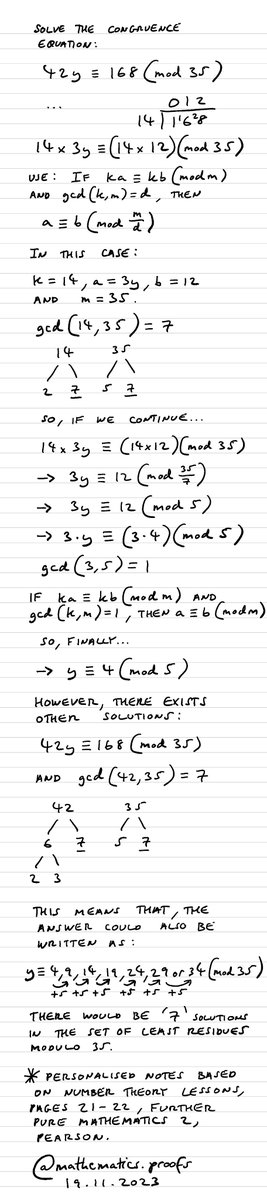 SOLVE THE CONGRUENCE
EQUATION:
42y ≡ 168 (mod 35)
...
012
14 | 1¹6²8
14 × 3y ≡ (14 × 12)(mod 35)
USE: IF ka ≡ kb (mod m)
AND gcd(k,m)=d, THEN
a ≡ b (mod m/d)
IN THIS CASE:
k = 14, a = 3y, b = 12
AND m = 35.
gcd(14,35) = 7
14 35
/ \ / \
2 7 5 7
SO, IF WE CONTINUE...
14 × 3y ≡ (14×12)(mod 35)
→ 3y ≡ 12 (mod 35/7)
→ 3y ≡ 12 (mod 5)
→ 3·y ≡ (3·4)(mod 5)
gcd(3,5) = 1
IF ka ≡ kb (mod m) AND
gcd(k,m)=1, THEN a ≡ b (mod m)
SO, FINALLY...
→ y ≡ 4 (mod 5)
HOWEVER, THERE EXISTS
OTHER SOLUTIONS:
42y ≡ 168 (mod 35)
AND gcd(42,35) = 7
42 35
/ \ / \
6 7 5 7
/ \
2 3
THIS MEANS THAT, THE
ANSWER COULD ALSO BE
WRITTEN AS:
y ≡ 4,9,14,19,24,29 or 34 (mod 35)
+5 +5 +5 +5 +5 +5
THERE WOULD BE '7' SOLUTIONS
IN THE SET OF LEAST RESIDUES
MODULO 35.
* PERSONALISED NOTES BASED
ON NUMBER THEORY LESSONS,
PAGES 21-22, FURTHER
PURE MATHEMATICS 2,
PEARSON.
@mathematics.proofs
19.11.2023